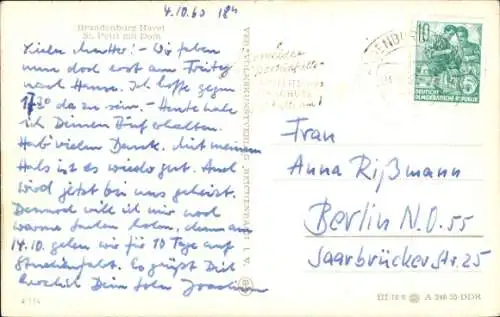 4.10.60 18h
Brandenburg Havel
St. Petri mit Dom
Liebe Mutter! – Wir fahren
nun doch erst am Freitag
nach Hause. Ich hoffe gegen
1730 da zu sein. – Heute habe
ich Deinen Brief erhalten.
Hab' vielen Dank. Mit meinem
Hals ist es wieder gut. Auch
wird jetzt bei uns geheizt.
Dennoch will ich mir noch
warme Sachen holen, denn am
14.10. gehen wir für 10 Tage auf
Studienfahrt. Es grüßt Dich
herzlich Dein Sohn Joachim
VEB VOLKSKUNSTVERLAG REICHENBACH I. V.
10
5
DEUTSCHE
DEMOKRATISCHE REPUBLIK
Frau
Anna Rißmann
Berlin N.O. 55
Saarbrücker Str. 25
III/18/6 A 246/55 DDR